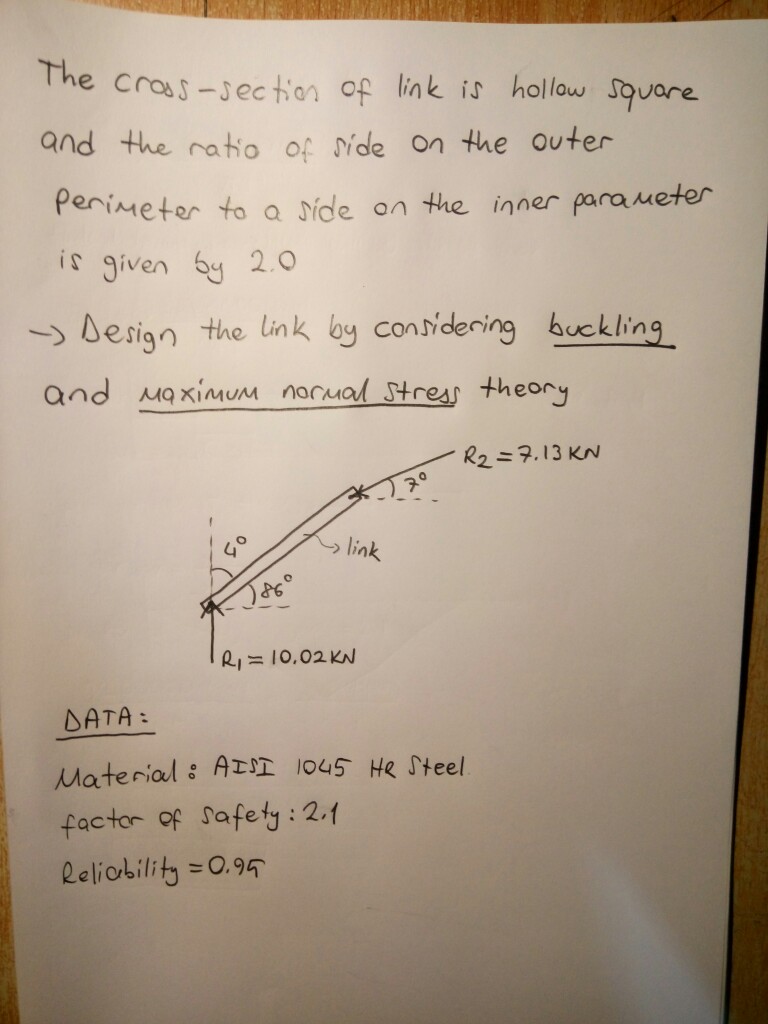 The cross-section of link is hollow square
and the ratio of side on the outer
perimeter to a side on the inner parameter
is given by 2.0
-> Design the link by considering buckling
and maximum normal stress theory
R2 = 7.13 KN
7°
4°
link
86°
R1 = 10.02 KN
DATA:
Material: AISI 1045 HR Steel
factor of safety: 2.1
Reliability = 0.95